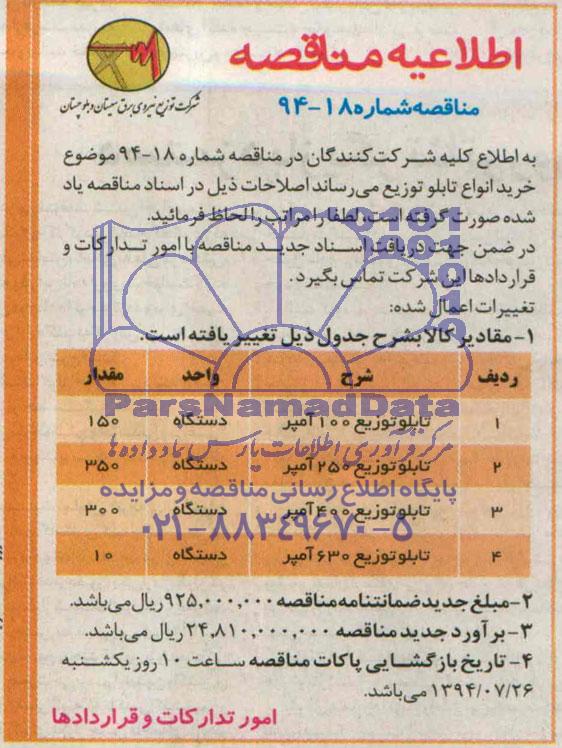 اطلاعیه مناقصه
شرکت توزیع نیروی برق سیستان و بلوچستان
مناقصه شماره ۱۸-۹۴
به اطلاع کلیه شرکت کنندگان در مناقصه شماره ۱۸-۹۴ موضوع
خرید انواع تابلو توزیع می‌رساند اصلاحات ذیل در اسناد مناقصه یاد
شده صورت گرفته است، لطفا مراتب را لحاظ فرمائید.
در ضمن جهت دریافت اسناد جدید مناقصه با امور تدارکات و
قراردادها این شرکت تماس بگیرد.
تغییرات اعمال شده:
۱- مقادیر کالا بشرح جدول ذیل تغییر یافته است.
ردیف شرح واحد مقدار
ParsNamadData
۱ تابلو توزیع ۱۰۰ آمپر دستگاه ۱۵۰
مرکز فرآوری اطلاعات پارس نماد داده ها
۲ تابلو توزیع ۲۵۰ آمپر دستگاه ۳۵۰
پایگاه اطلاع رسانی مناقصه و مزایده
۳ تابلو توزیع ۴۰۰ آمپر دستگاه ۳۰۰
۰۲۱-۸۸۳۴۹۶۷۰-۵
۴ تابلو توزیع ۶۳۰ آمپر دستگاه ۱۰
۲- مبلغ جدید ضمانتنامه مناقصه ۹۲۵,۰۰۰,۰۰۰ ریال می‌باشد.
۳- برآورد جدید مناقصه ۲۴,۸۱۰,۰۰۰,۰۰۰ ریال می‌باشد.
۴- تاریخ بازگشایی پاکات مناقصه ساعت ۱۰ روز یکشنبه
۱۳۹۴/۰۷/۲۶ می‌باشد.
امور تدارکات و قراردادها